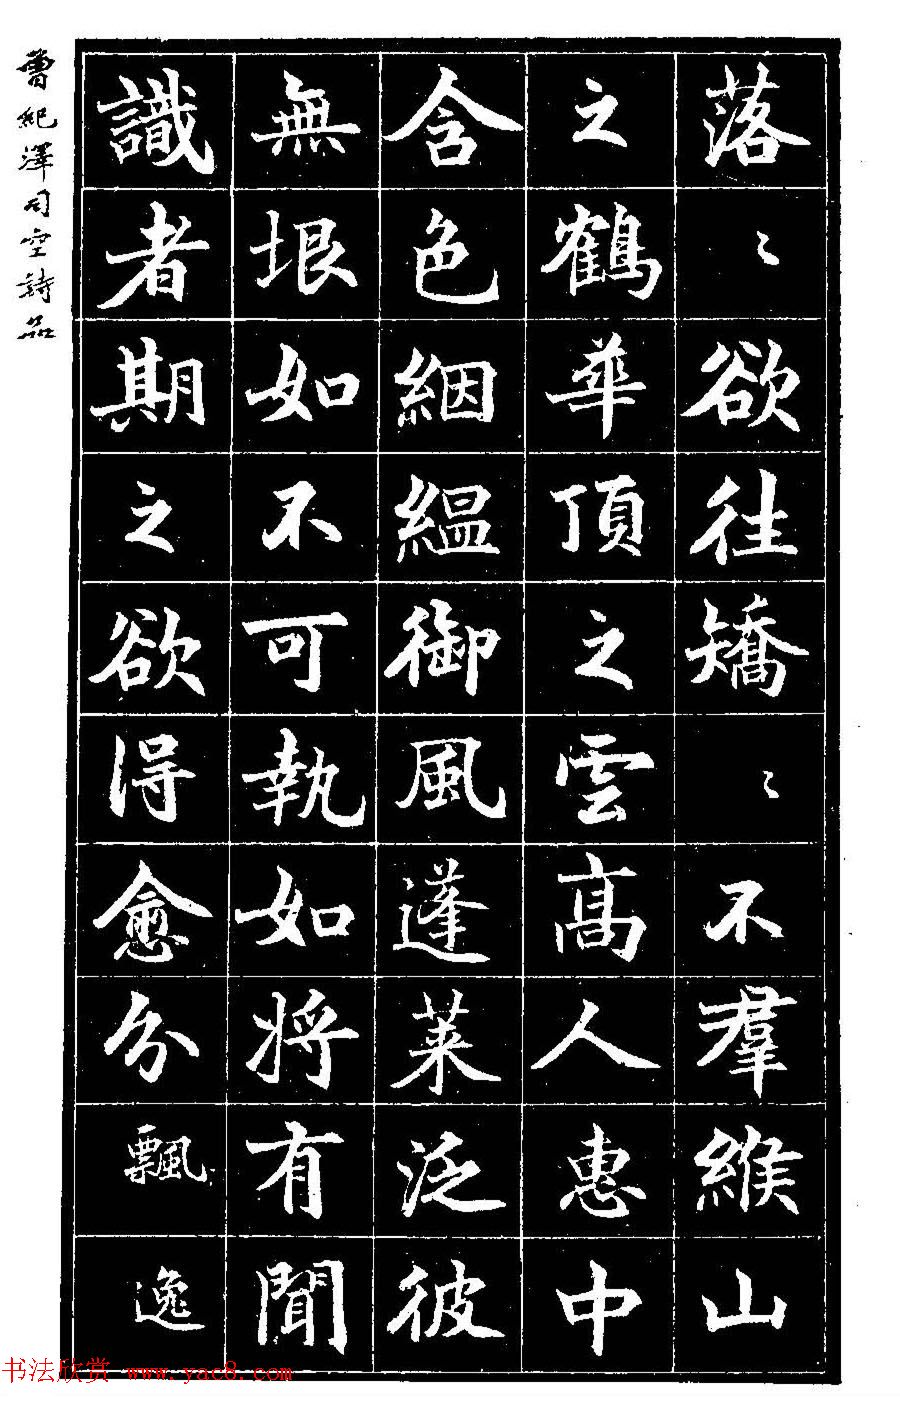 落〻欲往矯〻不羣緱山
之鶴華頂之雲高人惠中
含色絪縕御風蓬萊泛彼
無垠如不可執如將有聞
識者期之欲得愈分飄逸
曾紀澤司空詩品
书法欣赏 www.yac8.com